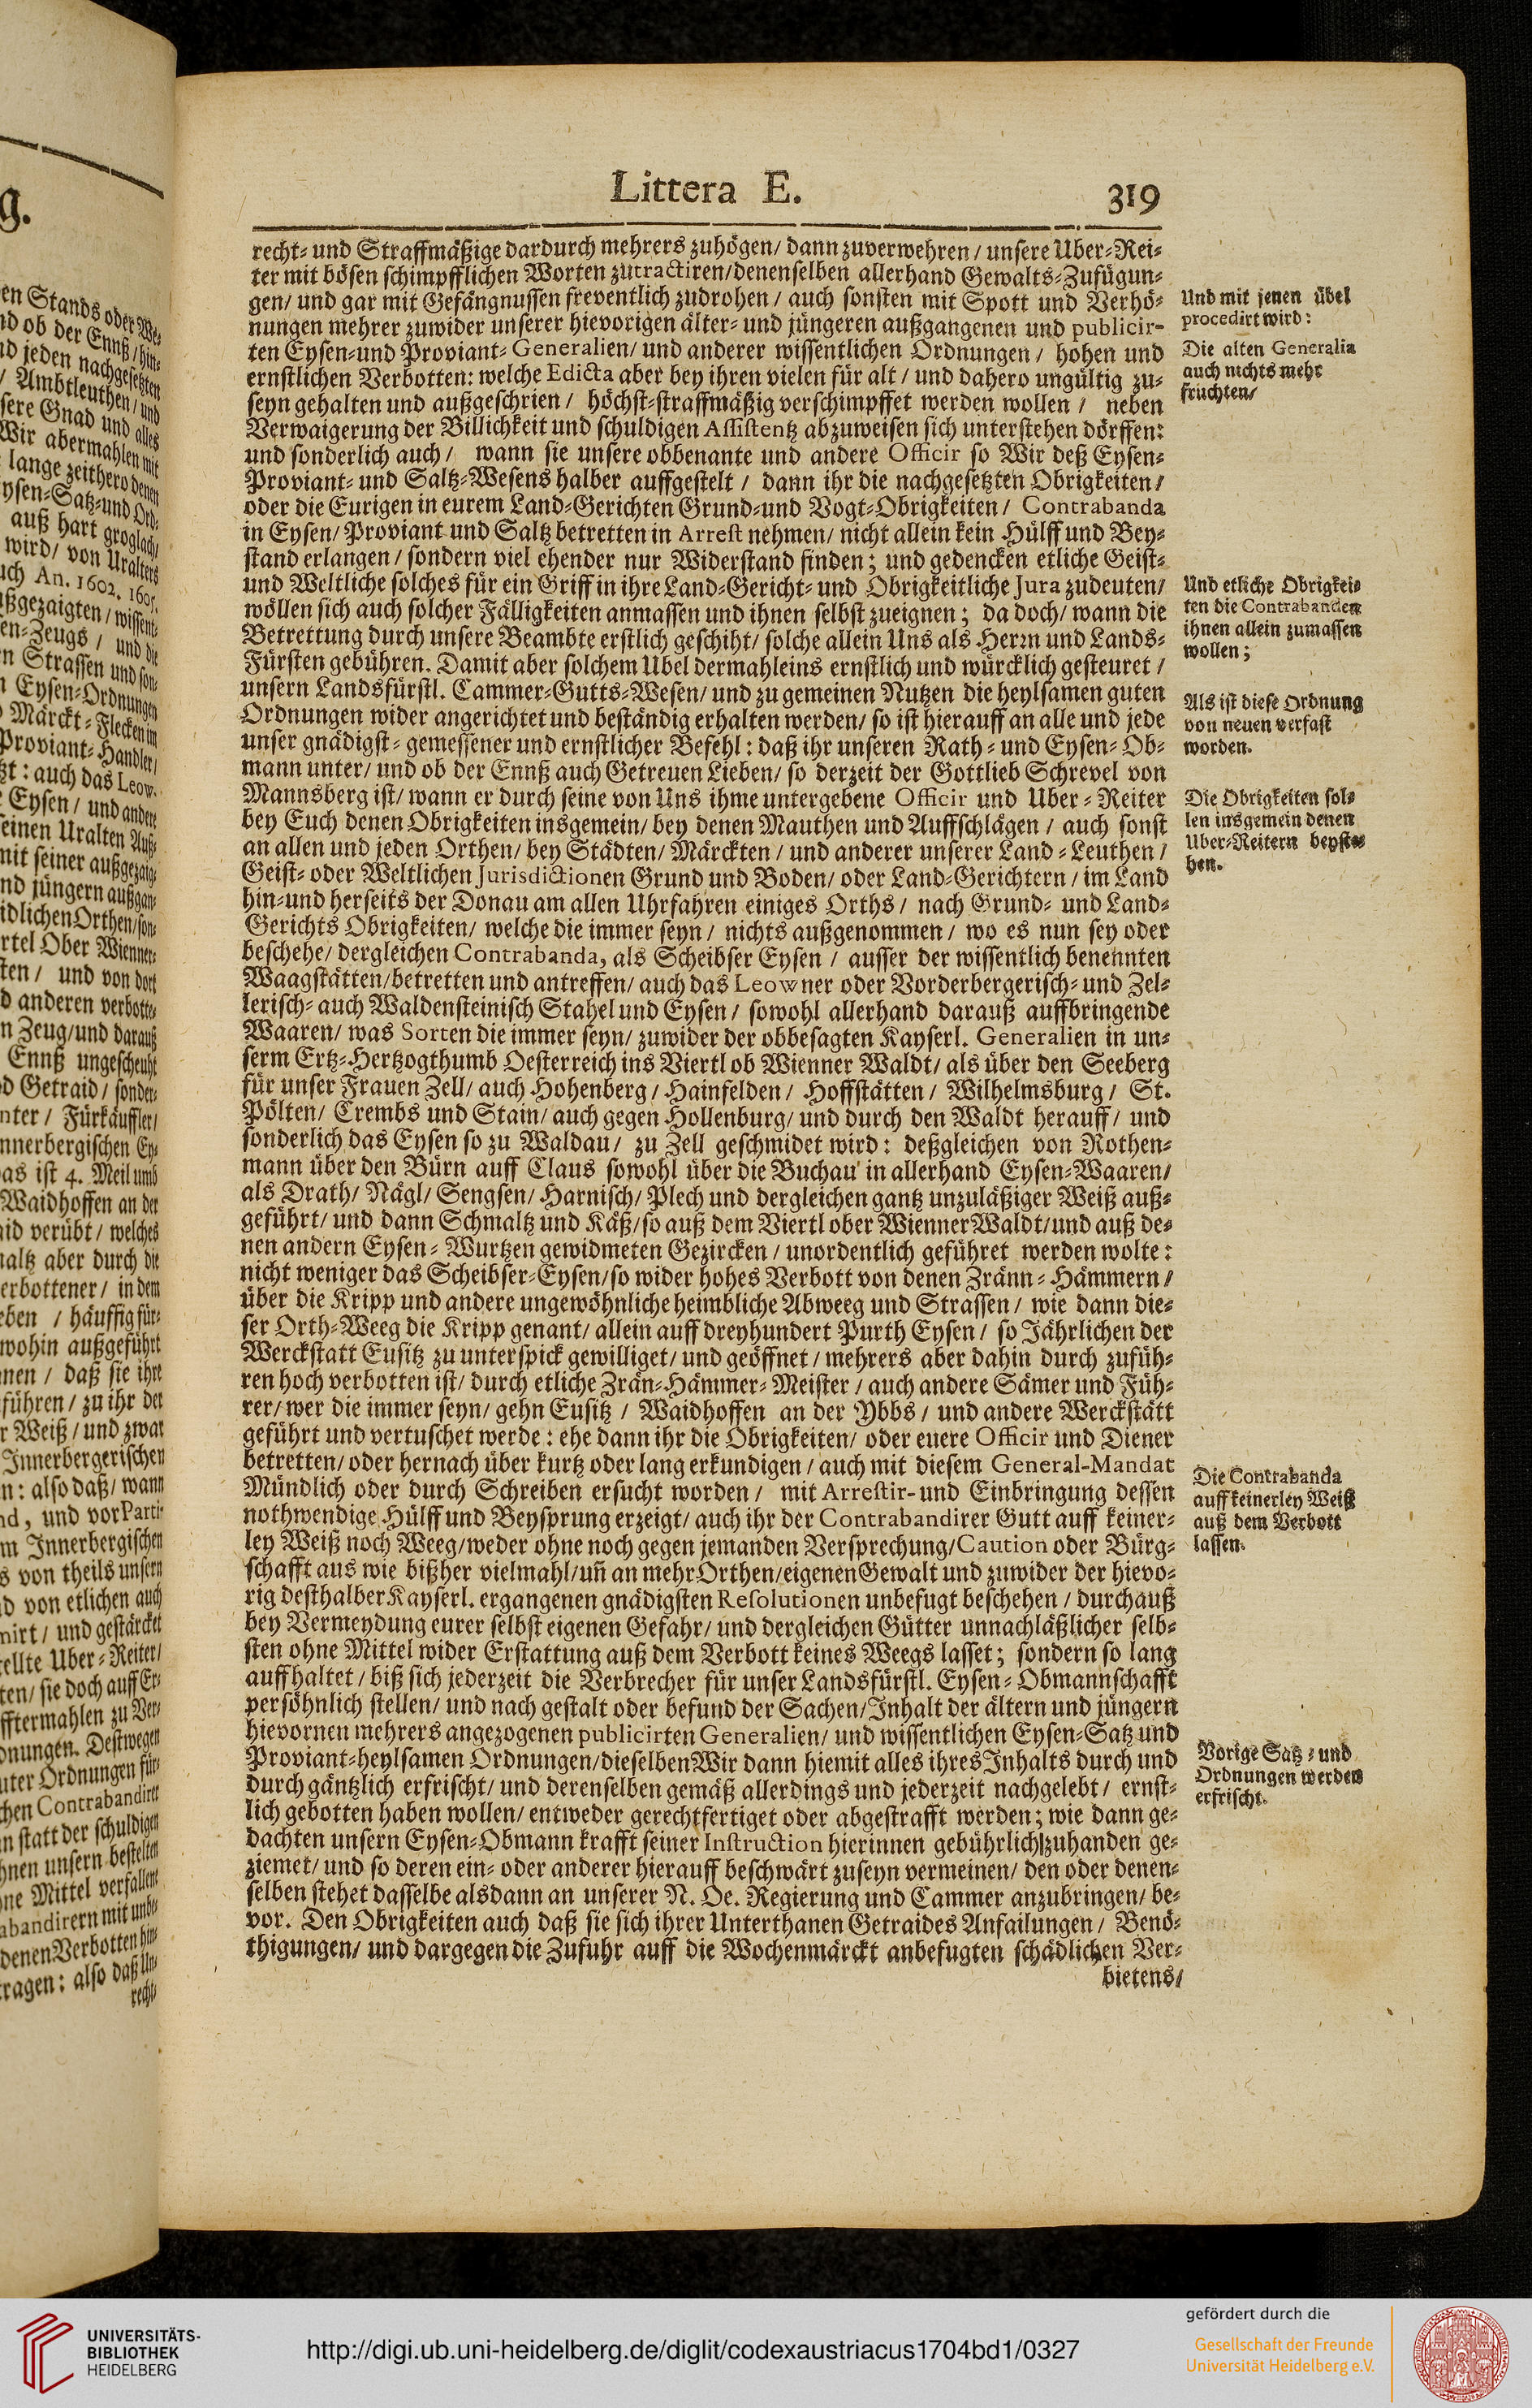 Littera E. 319
recht- und Straffmäßige dardurch mehrers zuhögen/ dann zuverwehren/ unsere Uber-Rei-
ter mit bösen schimpfflichen Worten zutractiren/ denenselben allerhand Gewalts-Zufügun-
gen/ und gar mit Gefängnussen freventlich zudrohen/ auch sonsten mit Spott und Verhö-
nungen mehrer zuwider unserer hievorigen älter- und jüngeren außgangenen und publicir-
ten Eysen-und Proviant-Generalien/ und anderer wissentlichen Ordnungen/ hohen und
ernstlichen Verbotten: welche Edicta aber bey ihren vielen für alt/ und dahero ungültig zu-
seyn gehalten und außgeschrien/ höchst-straffmäßig verschimpffet werden wollen/ neben
Verwaigerung der Billichkeit und schuldigen Assistentz abzuweisen sich unterstehen dörffen:
und sonderlich auch/ wann sie unsere obbenante und andere Officir so Wir deß Eysen-
Proviant- und Saltz-Wesens halber auffgestelt/ dann ihr die nachgesetzten Obrigkeiten/
oder die Eurigen in eurem Land-Gerichten Grund-und Vogt-Obrigkeiten/ Contrabanda
in Eysen/ Proviant und Saltz betretten in Arrest nehmen/ nicht allein kein Hülff und Bey-
stand erlangen/ sondern viel ehender nur Widerstand finden; und gedencken etliche Geist-
und Weltliche solches für ein Griff in ihre Land-Gericht- und Obrigkeitliche Jura zudeuten/
wöllen sich auch solcher Fälligkeiten anmassen und ihnen selbst zueignen; da doch/ wann die
Betrettung durch unsere Beambte erstlich geschiht/ solche allein Uns als Herrn und Lands-
Fürsten gebühren. Damit aber solchem Ubel dermahleins ernstlich und würcklich gesteuret/
unsern Landsfürstl. Cammer-Gutts-Wesen/ und zu gemeinen Nutzen die heylsamen guten
Ordnungen wider angerichtet und beständig erhalten werden/ so ist hierauff an alle und jede
unser gnädigst-gemessener und ernstlicher Befehl: daß ihr unseren Rath- und Eysen-Ob-
mann unter/ und ob der Ennß auch Getreuen Lieben/ so derzeit der Gottlieb Schrevel von
Mannsberg ist/ wann er durch seine von Uns ihme untergebene Officir und Uber-Reiter
bey Euch denen Obrigkeiten insgemein/ bey denen Mauthen und Auffschlägen/ auch sonst
an allen und jeden Orthen/ bey Städten/ Märckten/ und anderer unserer Land-Leuthen/
Geist- oder Weltlichen Jurisdictionen Grund und Boden/ oder Land-Gerichtern/ im Land
hin-und herseits der Donau am allen Uhrfahren einiges Orths/ nach Grund- und Land-
Gerichts Obrigkeiten/ welche die immer seyn/ nichts außgenommen/ wo es nun sey oder
beschehe/ dergleichen Contrabanda, als Scheibser Eysen/ ausser der wissentlich benennten
Waagstätten/ betretten und antreffen/ auch das Leowner oder Vorderbergerisch- und Zel-
lerisch- auch Waldensteinisch Stahel und Eysen/ sowohl allerhand darauß auffbringende
Waaren/ was Sorten die immer seyn/ zuwider der obbesagten Kayserl. Generalien in un-
serm Ertz-Hertzogthumb Oesterreich ins Viertl ob Wienner Waldt/ als über den Seeberg
für unser Frauen Zell/ auch Hohenberg/ Hainfelden/ Hoffstätten/ Wilhelmsburg/ St.
Pölten/ Crembs und Stain/ auch gegen Hollenburg/ und durch den Waldt herauff/ und
sonderlich das Eysen so zu Waldau/ zu Zell geschmidet wird: deßgleichen von Rothen-
mann über den Bürn auff Claus sowohl über die Buchau in allerhand Eysen-Waaren/
als Drath/ Nägl/ Sengsen/ Harnisch/ Plech und dergleichen gantz unzuläßiger Weiß auß-
geführt/ und dann Schmaltz und Käß/ so auß dem Viertl ober Wienner Waldt/ und auß de-
nen andern Eysen-Wurtzen gewidmeten Gezircken/ unordentlich geführet werden wolte:
nicht weniger das Scheibser-Eysen/ so wider hohes Verbott von denen Zränn-Hämmern/
über die Kripp und andere ungewöhnliche heimbliche Abweeg und Strassen/ wie dann die-
ser Orth-Weeg die Kripp genant/ allein auff dreyhundert Purth Eysen/ so Jährlichen der
Werckstatt Eusitz zu unterspick gewilliget/ und geöffnet/ mehrers aber dahin durch zufüh-
ren hoch verbotten ist/ durch etliche Zrän-Hämmer-Meister/ auch andere Sämer und Füh-
rer/ wer die immer seyn/ gehn Eusitz/ Waidhoffen an der Ybbs/ und andere Werckstätt
geführt und vertuschet werde: ehe dann ihr die Obrigkeiten/ oder euere Officir und Diener
betretten/ oder hernach über kurtz oder lang erkundigen/ auch mit diesem General-Mandat
Mündlich oder durch Schreiben ersucht worden/ mit Arrestir- und Einbringung dessen
nothwendige Hülff und Beysprung erzeigt/ auch ihr der Contrabandirer Gutt auff keiner-
ley Weiß noch Weeg/ weder ohne noch gegen jemanden Versprechung/ Caution oder Bürg-
schafft aus wie bißher vielmahl/ uñ an mehr Orthen/ eigenen Gewalt und zuwider der hievo-
rig desthalber Kayserl. ergangenen gnädigsten Resolutionen unbefugt beschehen/ durchauß
bey Vermeydung eurer selbst eigenen Gefahr/ und dergleichen Gütter unnachläßlicher selb-
sten ohne Mittel wider Erstattung auß dem Verbott keines Weegs lasset; sondern so lang
auffhaltet/ biß sich jederzeit die Verbrecher für unser Landsfürstl. Eysen-Obmannschafft
persöhnlich stellen/ und nach gestalt oder befund der Sachen/ Inhalt der ältern und jüngern
hievornen mehrers angezogenen publicirten Generalien/ und wissentlichen Eysen-Satz und
Proviant-heylsamen Ordnungen/ dieselben Wir dann hiemit alles ihres Inhalts durch und
durch gäntzlich erfrischt/ und derenselben gemäß allerdings und jederzeit nachgelebt/ ernst-
lich gebotten haben wollen/ entweder gerechtfertiget oder abgestrafft werden; wie dann ge-
dachten unsern Eysen-Obmann krafft seiner Instruction hierinnen gebührlich zuhanden ge-
ziemet/ und so deren ein- oder anderer hierauff beschwärt zuseyn vermeinen/ den oder denen-
selben stehet dasselbe alsdann an unserer N. Oe. Regierung und Cammer anzubringen/ be-
vor. Den Obrigkeiten auch daß sie sich ihrer Unterthanen Getraides Anfailungen/ Benö-
thigungen/ und dargegen die Zufuhr auff die Wochenmärckt anbefugten schädlichen Ver-
bietens/
Und mit jenen übel
procedirt wird:
Die alten Generalia
auch nichts mehr
fruchten/
Und etliche Obrigkei-
ten die Contrabanden
ihnen allein zumassen
wollen;
Als ist diese Ordnung
von neuen verfast
worden.
Die Obrigkeiten sol-
len insgemein denen
Uber-Reitern beyste-
hen.
Die Contrabanda
auff keinerley Weiß
auß dem Verbott
lassen.
Vorige Satz- und
Ordnungen werden
erfrischt.
UNIVERSITÄTS-
BIBLIOTHEK
HEIDELBERG
http://digi.ub.uni-heidelberg.de/diglit/codexaustriacus1704bd1/0327
gefördert durch die
Gesellschaft der Freunde
Universität Heidelberg e.V.